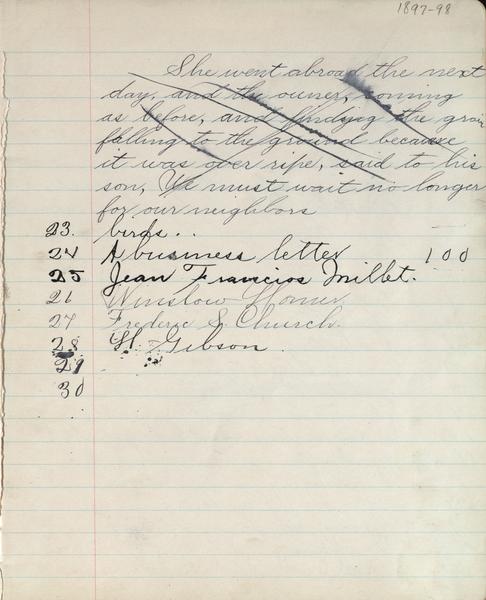 1897-98
She went abroad the next
day, and the owner, coming
as before, and finding the grain
falling to the ground because
it was over ripe, said to his
son, We must wait no longer
for our neighbors
23. birds..
24 A business letter 100
25 Jean Francios Millet.
26 Winslow Homer
27 Frederic S. Church.
28 H. Gibson.
29
30